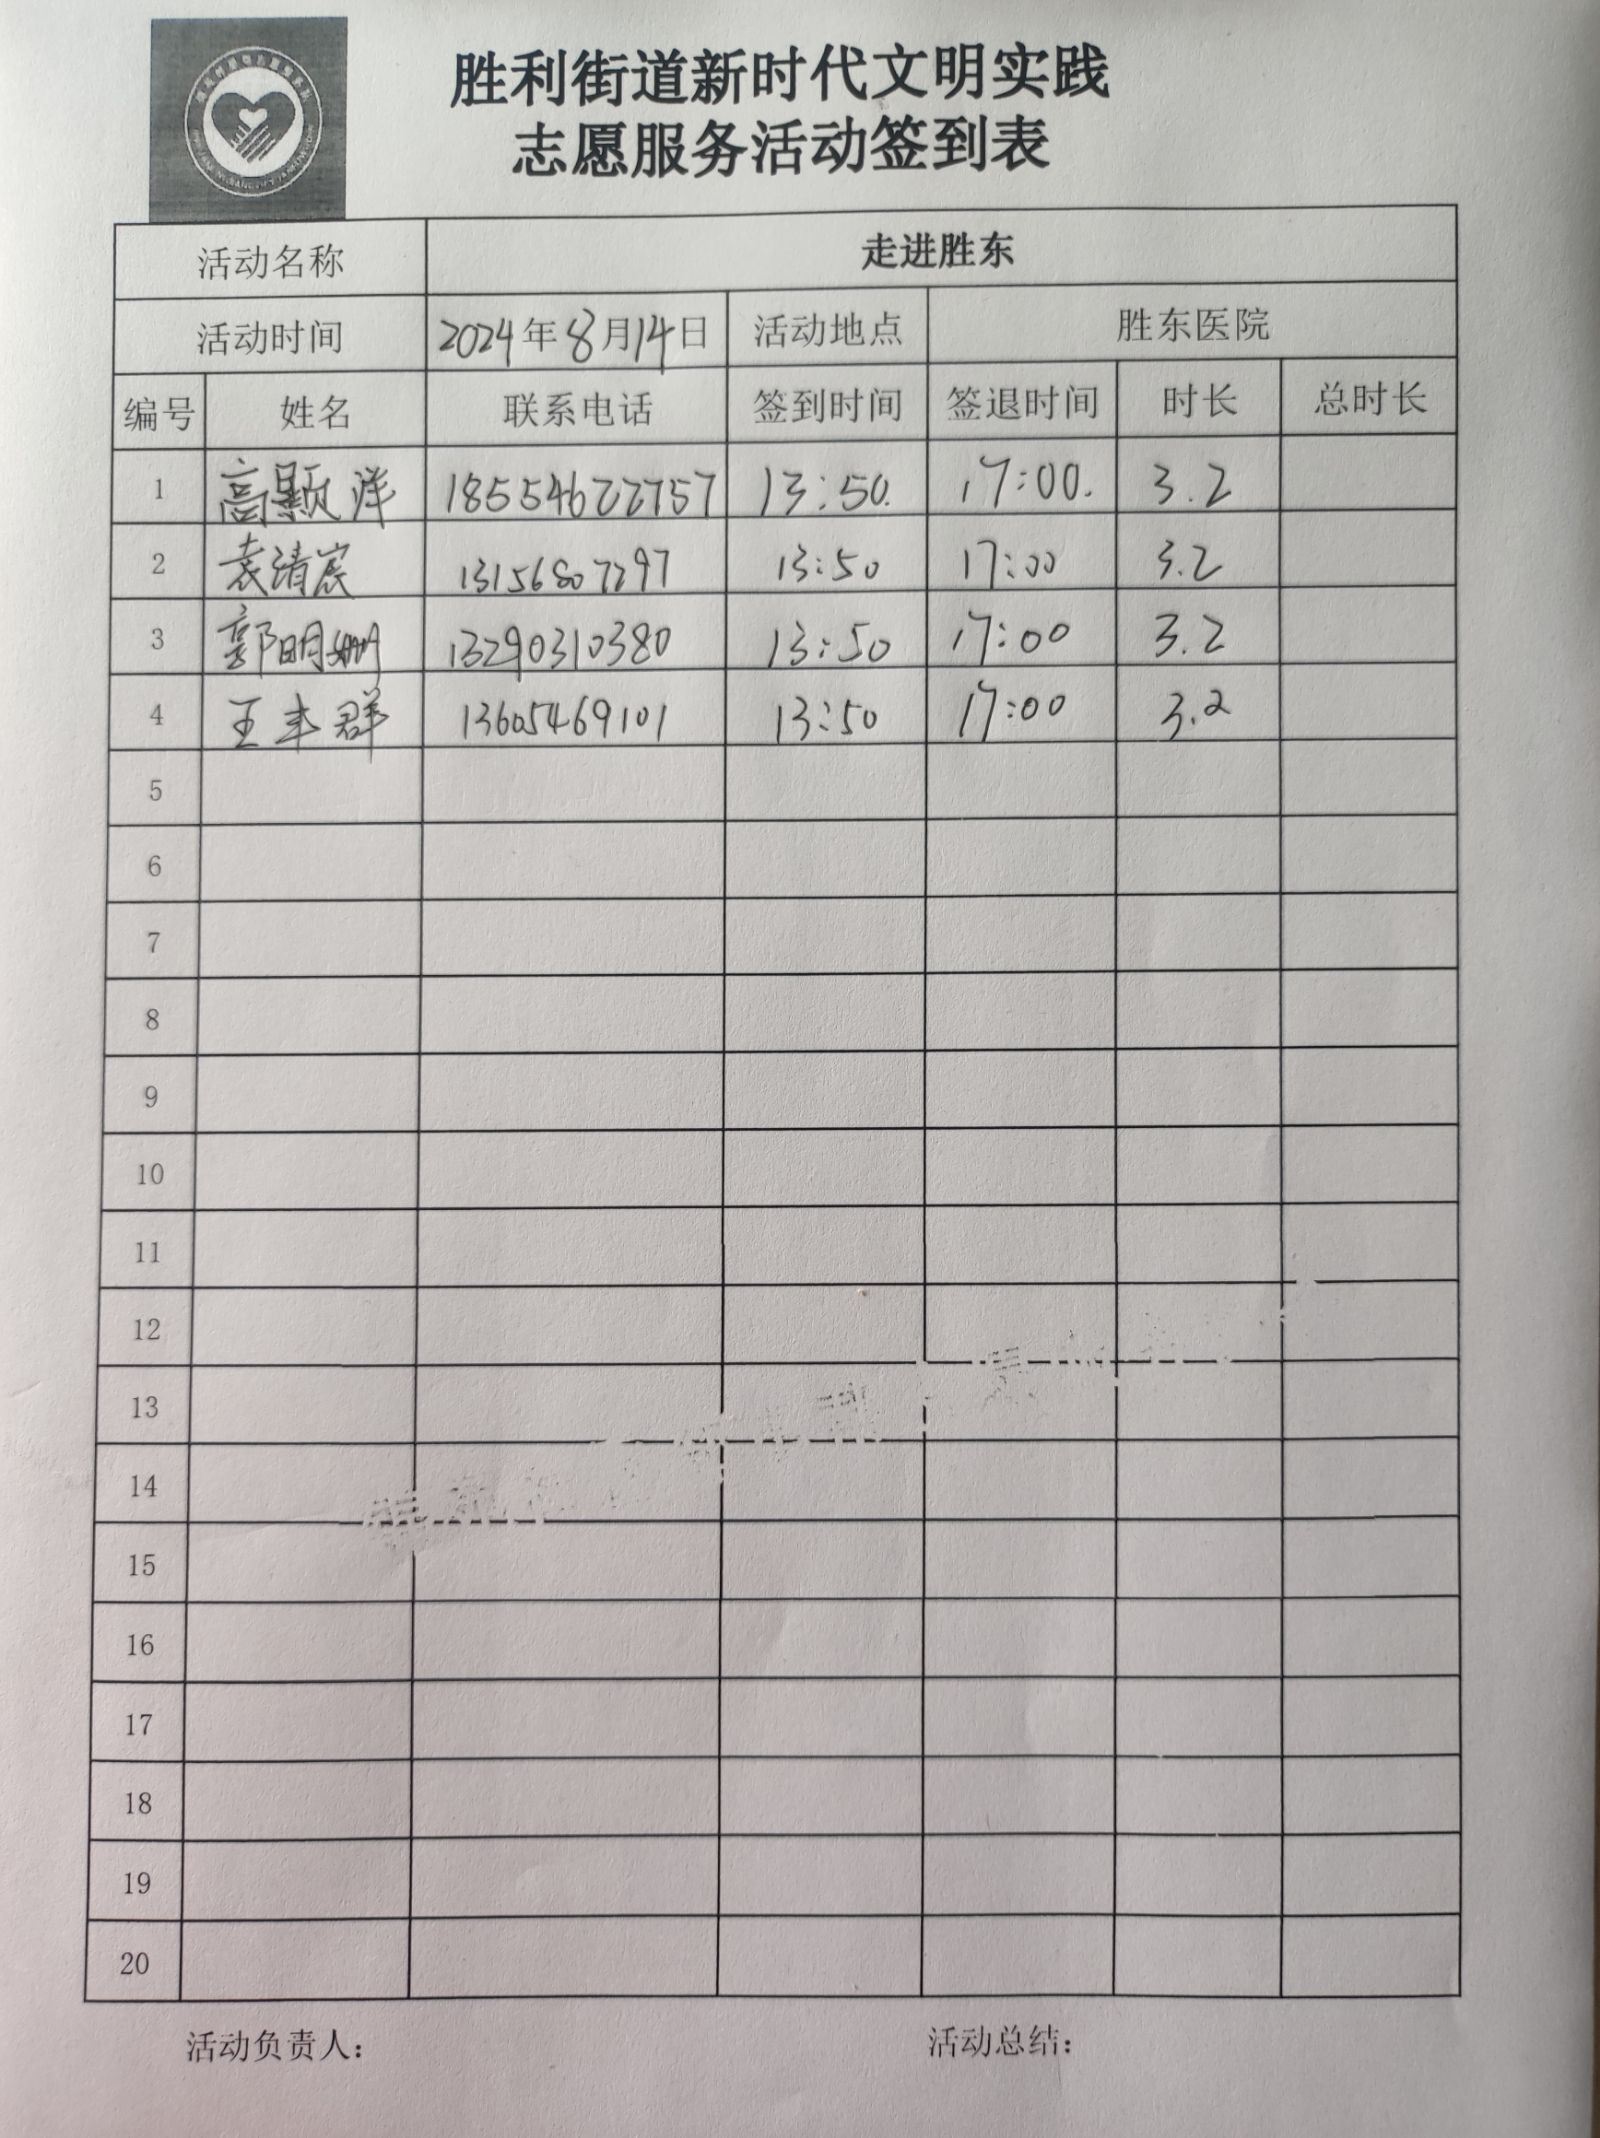 胜利街道新时代文明实践
志愿服务活动签到表
活动名称 走进胜东
活动时间 2024年8月14日 活动地点 胜东医院
编号 姓名 联系电话 签到时间 签退时间 时长 总时长
1 高颢洋 18554622757 13:50. 17:00. 3.2
2 袁清宸 13156807297 13:50 17:00 3.2
3 郭明姗 13290310380 13:50 17:00 3.2
4 王丰群 13605469101 13:50 17:00 3.2
5
6
7
8
9
10
11
12
13
14
15
16
17
18
19
20
活动负责人： 活动总结：